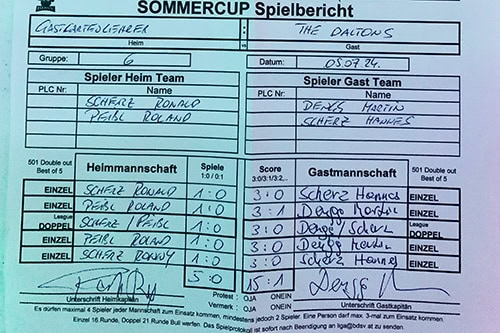 SOMMERCUP Spielbericht
GASTGARTENLEHRER : THE DALTONS
Heim vs Gast
Gruppe: 6 Datum: 05.07.24.
Spieler Heim Team Spieler Gast Team
PLC Nr: Name PLC Nr: Name
SCHERZ RONALD MARTIN
PEIBL ROLAND SCHERZ HANNES
501 Double out Best of 5 Heimmannschaft Spiele 1:0 / 0:1 Score 3:0/3:1/3:2,.. Gastmannschaft 501 Double out Best of 5
EINZEL SCHERZ RONALD 1:0 3:0 Scherz Hannes EINZEL
EINZEL PEIBL ROLAND 1:0 3:1 EINZEL
League DOPPEL SCHERZ / PEIBL 1:0 3:0 League DOPPEL
EINZEL PEIBL ROLAND 1:0 3:0 EINZEL
EINZEL SCHERZ RONNY 1:0 3:0 Scherz Hannes EINZEL
5:0 15:1
Unterschrift Heimkapitän Protest : OJA ONEIN Unterschrift Gastkapitän
Vermerk : OJA ONEIN
Es dürfen maximal 4 Spieler jeder Mannschaft zum Einsatz kommen, mindestens jedoch 2 Spieler. Eine Person darf max. 3-mal zum Einsatz kommen.
Einzel 16.Runde, Doppel 21 Runde Bull werfen. Das Spielprotokoll ist sofort nach Beendigung an liga@bdsv at zu senden